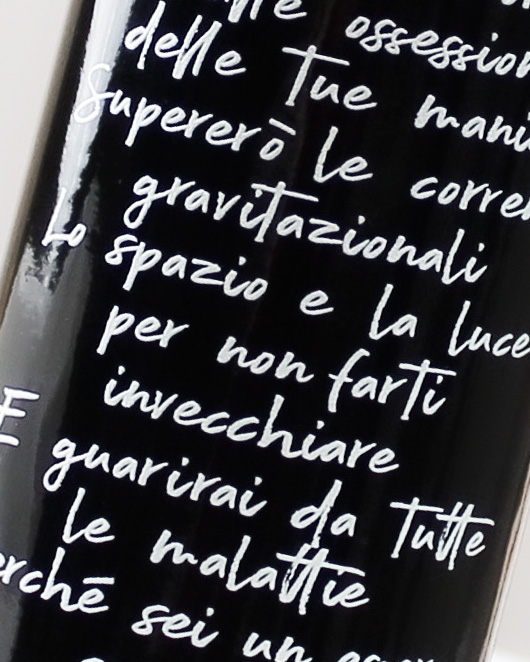 delle tue
Supererò le
gravitazionali
Lo spazio e la luce
per non farti
invecchiare
E guarirai da tutte
le malattie
sei un